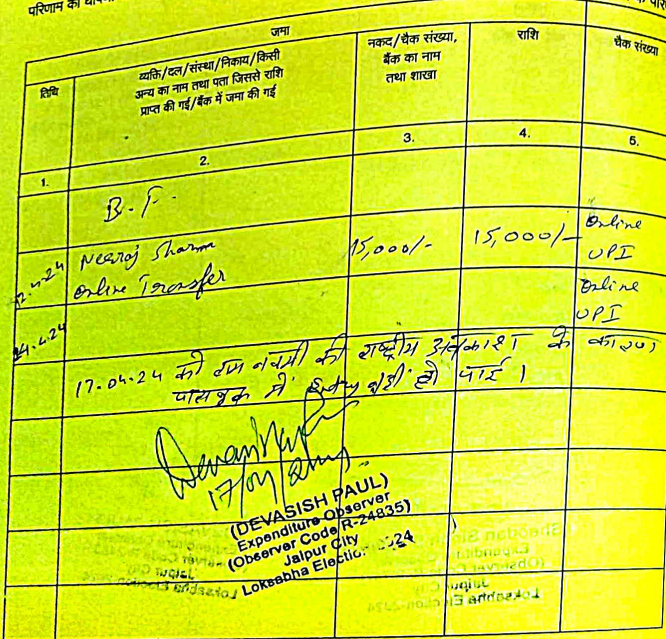 परिणाम की
जमा
तिथि
व्यक्ति/दल/संस्था/निकाय/किसी
अन्य का नाम तथा पता जिससे राशि
प्राप्त की गई/बैंक में जमा की गई
नकद/चैक संख्या,
बैंक का नाम
तथा शाखा
राशि
चैक संख्या
1.
2.
3.
4.
5.
B.F.
Neeraj Sharma
Online Transfer
15,000/-
15,000/-
Online
UPI
14.4.24
Online
UPI
17.04.24 को राम नवमी की राष्ट्रीय अवकाश के कारण
पासबुक में नहीं हो पाई।
(DEVASISH PAUL)
Expenditure Observer
(Observer Code R-24835)
Jaipur City
Loksabha Election 2024